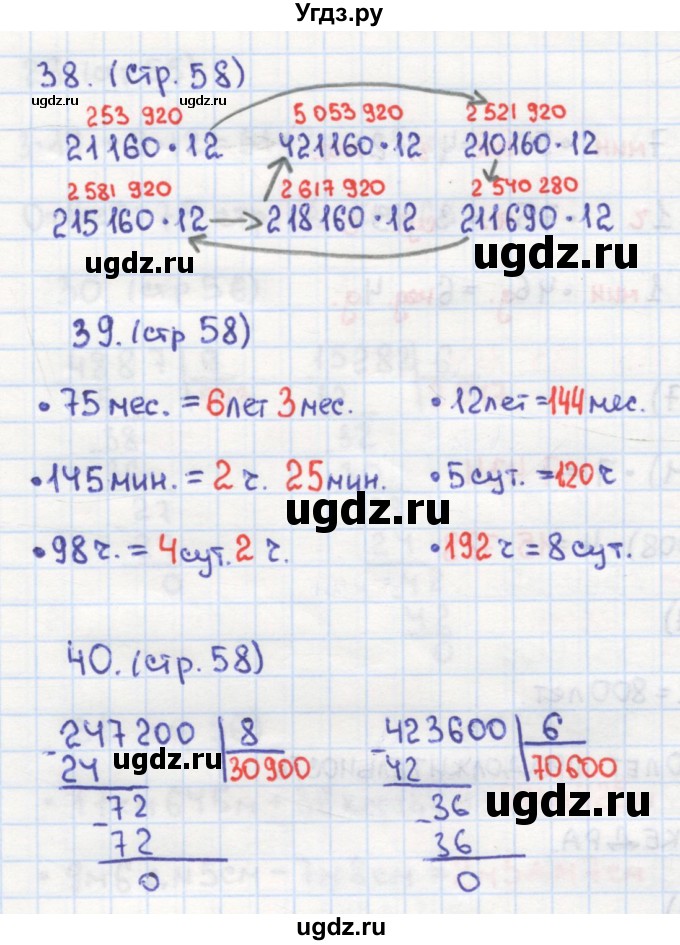 Угдз.ру
38. (стр. 58)
ugdz.ru ugdz.ru ugdz.ru
253 920 5 053 920 2 521 920
21160·12 421160·12 210160·12
2 581 920 2 617 920 2 540 280
215160·12 218160·12 211690·12
ugdz.ru ugdz.ru
39. (стр 58)
• 75 мес. = 6 лет 3 мес. • 12 лет = 144 мес.
• 145 мин. = 2 ч. 25 мин. • 5 сут. = 120 ч
ugdz.ru
• 98 ч. = 4 сут. 2 ч. • 192 ч = 8 сут.
40. (стр. 58)
247200 8 423600 6
- 24 30900 - 42 70600
- 72 - 36
72 36
0 0
ugdz.ru ugdz.ru
ugdz.ru